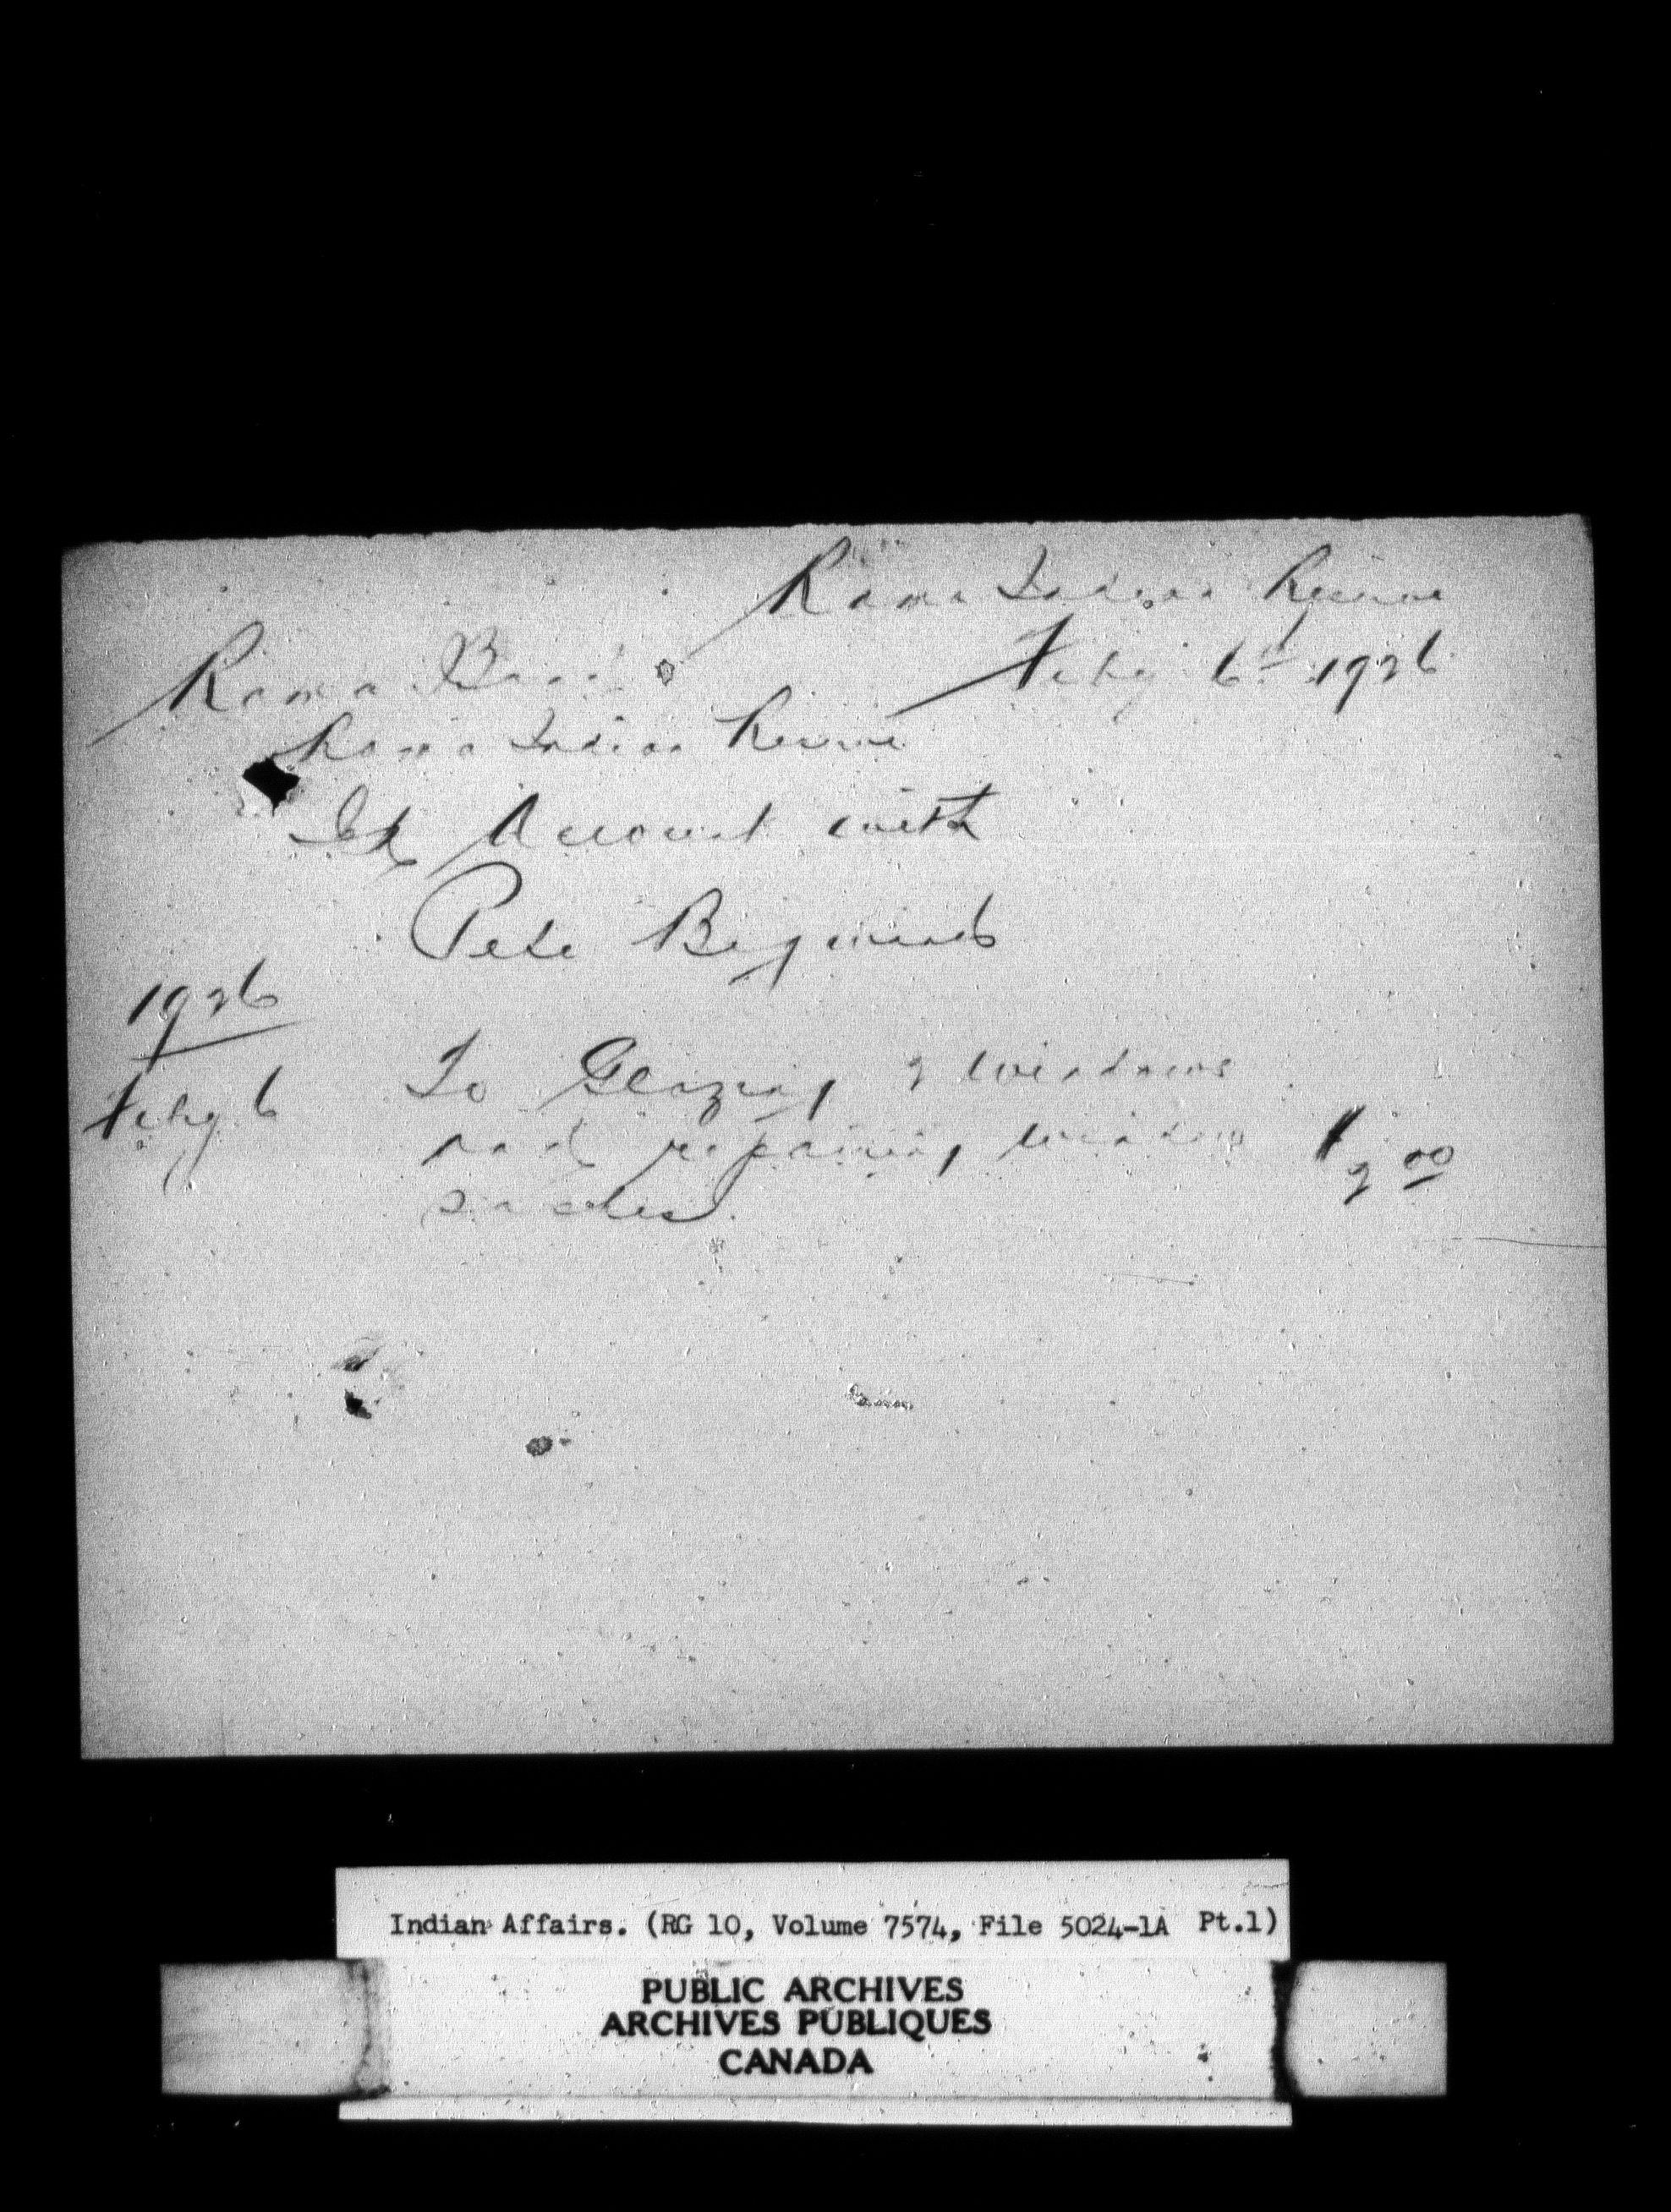 Rama Indian Reserve
Feby 6th 1926
Rama Band
Rama Indian Reserve
In Account with
Pete Bigwind
1926
Feby 6 To Glazing 2 Windows
and repairing window $2.00
sashes.
Indian Affairs. (RG 10, Volume 7574, File 5024-1A Pt.1)
PUBLIC ARCHIVES
ARCHIVES PUBLIQUES
CANADA